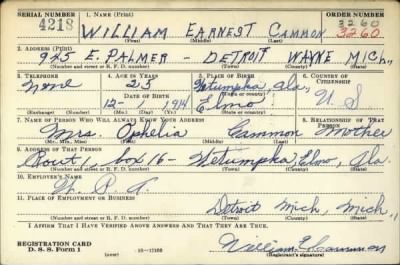 SERIAL NUMBER 1. NAME (Print) ORDER NUMBER
4218 WILLIAM EARNEST CAMMON 3260
3260
(First) (Middle) (Last)
2. ADDRESS (Print)
945 E. PALMER - DETROIT WAYNE MICH.,
(Number and street or R. F. D. number) (Town) (County) (State)
3. TELEPHONE 4. AGE IN YEARS 5. PLACE OF BIRTH 6. COUNTRY OF CITIZENSHIP
None 25 Wetumpka, Ala,
(Town or county)
12-1 1914 Elmo U.S
(Exchange) (Number) (Mo.) (Day) (Yr.) (State or country)
7. NAME OF PERSON WHO WILL ALWAYS KNOW YOUR ADDRESS 8. RELATIONSHIP OF THAT PERSON
Mrs. Ophelia Cammon Mother
(Mr., Mrs., Miss) (First) (Middle) (Last)
9. ADDRESS OF THAT PERSON
Rout 1, box 16 - Wetumpka Elmo, Ala.
(Number and street or R. F. D. number) (Town) (County) (State)
10. EMPLOYER'S NAME
W. P. A.
11. PLACE OF EMPLOYMENT OR BUSINESS
Detroit Mich, Mich.,
(Number and street or R. F. D. number) (Town) (County) (State)
I AFFIRM THAT I HAVE VERIFIED ABOVE ANSWERS AND THAT THEY ARE TRUE.
REGISTRATION CARD
D. S. S. Form 1 (over) 16-17105 William E Cammon
(Registrant's signature)